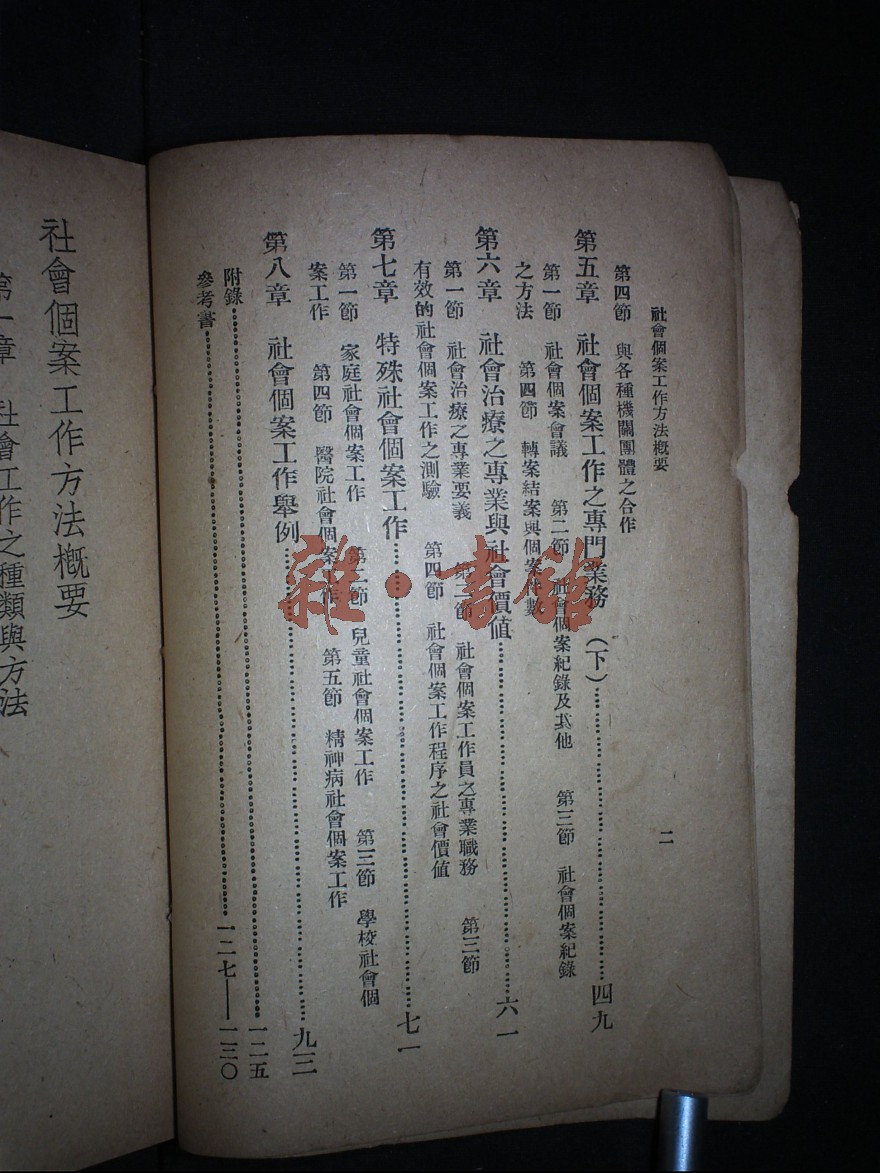 社會個案工作方法概要
二
第四節　與各種機關團體之合作
第五章　社會個案工作之專門業務（下）……四九
第一節　社會個案會議　第二節　社會個案紀錄及其他　第三節　社會個案紀錄
之方法　第四節　轉案結案與個案件數
第六章　社會治療之專業與社會價値……六一
第一節　社會治療之專業要義　第二節　社會個案工作員之專業職務　第三節
有效的社會個案工作之測驗　第四節　社會個案工作程序之社會價値
第七章　特殊社會個案工作……七一
第一節　家庭社會個案工作　第二節　兒童社會個案工作　第三節　學校社會個
案工作　第四節　醫院社會個案工作　第五節　精神病社會個案工作
第八章　社會個案工作舉例……九三
附錄……一二五
參考書……一二七——一三〇
社會個案工作方法槪要
第一章　社會工作之種類與方法
雜·書館